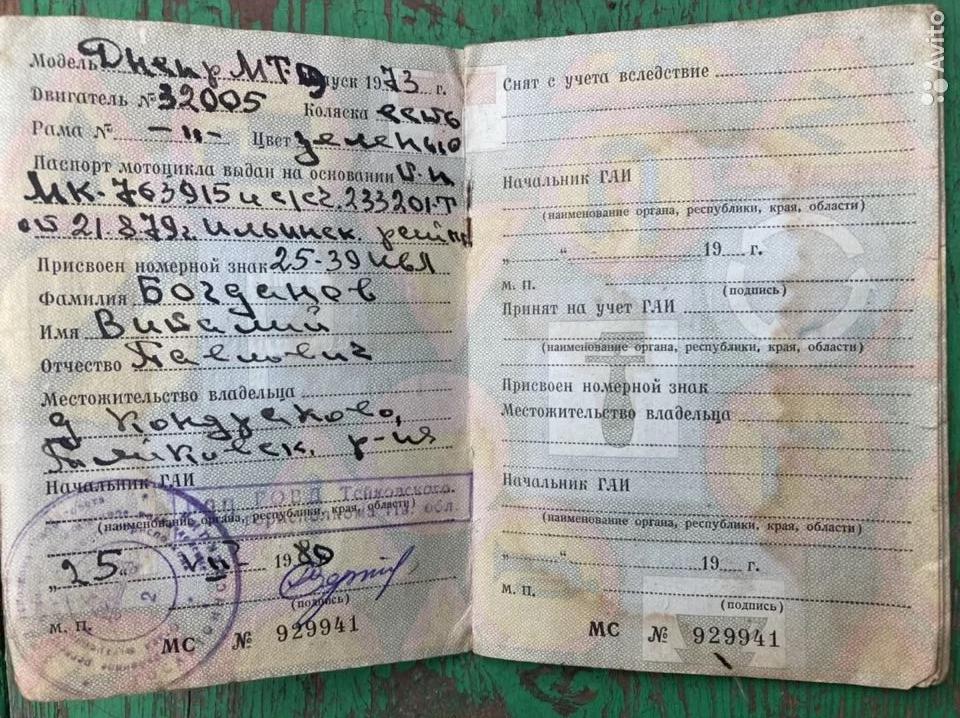 Модель Днепр МТ-9 Выпуск 1973 г.
Двигатель № 32005 Коляска есть
Рама № -"- Цвет зелены
Паспорт мотоцикла выдан на основании
МК-763915 и с/сч. 233201-Т
от 21.8 79 г. Ильинск.
Присвоен номерной знак 25-39
Фамилия Богданов
Имя Виталий
Отчество Павлович
Местожительство владельца
д
Тейковск. р-на
Начальник ГАИ
ГОВД Тейковского
(наименование органа, республики, края, области)
обл.
„25" VII 1980
(подпись)
М. П.
МС № 929941
Снят с учета вследствие
Начальник ГАИ
(наименование органа, республики, края, области)
„ “ 19 г.
М. П.
(подпись)
Принят на учет ГАИ
(наименование органа, республики, края, области)
Присвоен номерной знак
Местожительство владельца
Начальник ГАИ
(наименование органа, республики, края, области)
„ “ 19 г.
М. П.
(подпись)
МС № 929941
Avito